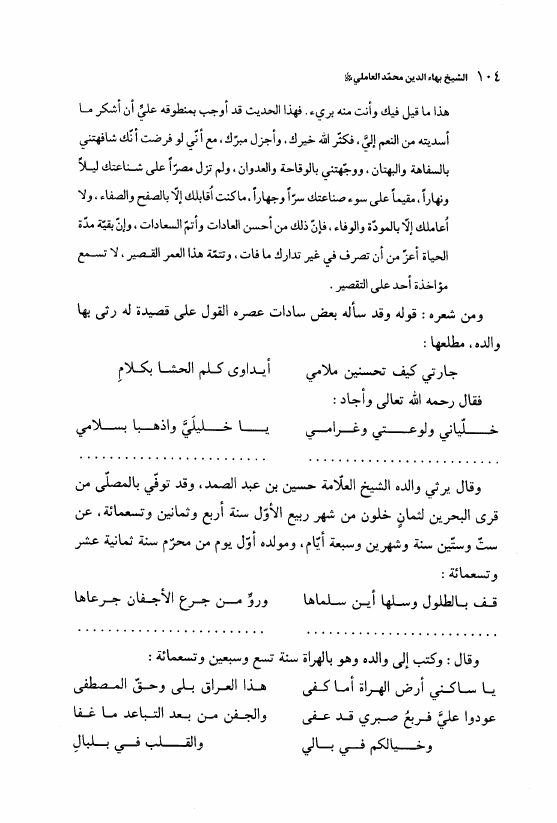 ١٠٤ الشيخ بهاء الدين محمّد العاملي ﷺ
هذا ما قيل فيك وأنت منه بريء. فهذا الحديث قد أوجب بمنطوقه عليَّ أن أشكر مـا
أسديته من النعم إليَّ، فكثّر الله خيرك، وأجزل مبرّك، مع أنّي لو فرضت أنّك شافهتني
بالسفاهة والبهتان، ووجّهتني بالوقاحة والعدوان، ولم تزل مصرّاً على شـناعتك ليـلاً
ونهاراً، مقيماً على سوء صناعتك سرّاً وجهاراً، ماكنت اُقابلك إلّا بالصفح والصفاء، ولا
اُعاملك إلّا بالمودّة والوفاء، فإنّ ذلك من أحسن العادات وأتمّ السعادات، وإنّ بقيّة مدّة
الحياة أعزّ من أن تصرف في غير تدارك ما فات، وتتمّة هذا العمر القـصير، لا تسـمع
مؤاخذة أحد على التقصير.
ومن شعره: قوله وقد سأله بعض سادات عصره القول على قصيدة له رثى بها
والده، مطلعها:
جارتي كيف تحسنين ملامي أيـداوى كـلم الحشـا بكـلامِ
فقال رحمه الله تعالى وأجاد:
خـــلّياني ولوعـــتي وغـرامـــي يـــا خـــليليَّ واذهبـا بســـلامي
وقال يرثي والده الشيخ العلّامة حسين بن عبد الصمد، وقد توفّي بالمصلّى من
قرى البحرين لثمانٍ خلون من شهر ربيع الأوّل سنة أربع وثمانين وتسعمائة، عن
ستّ وستّين سنة وشهرين وسبعة أيّام، ومولده أوّل يوم من محرّم سنة ثمانية عشر
وتسعمائة:
قـف بـالطلول وسـلها أيـن سـلماها وروِّ مـــن جـرع الأجـفان جـرعاها
وقال: وكتب إلى والده وهو بالهراة سنة تسع وسبعين وتسعمائة:
يـا سـاكـني أرض الهـراة أمـا كـفى هـذا العراق بـلى وحـقّ المـصطفى
عودوا عليَّ فـربعُ صـبري قـد عـفى والجفن مـن بـعد التباعد مـا غـفا
وخـــيالكم فـــي بـــالي والقـــلب فـــي بـــلبالِ